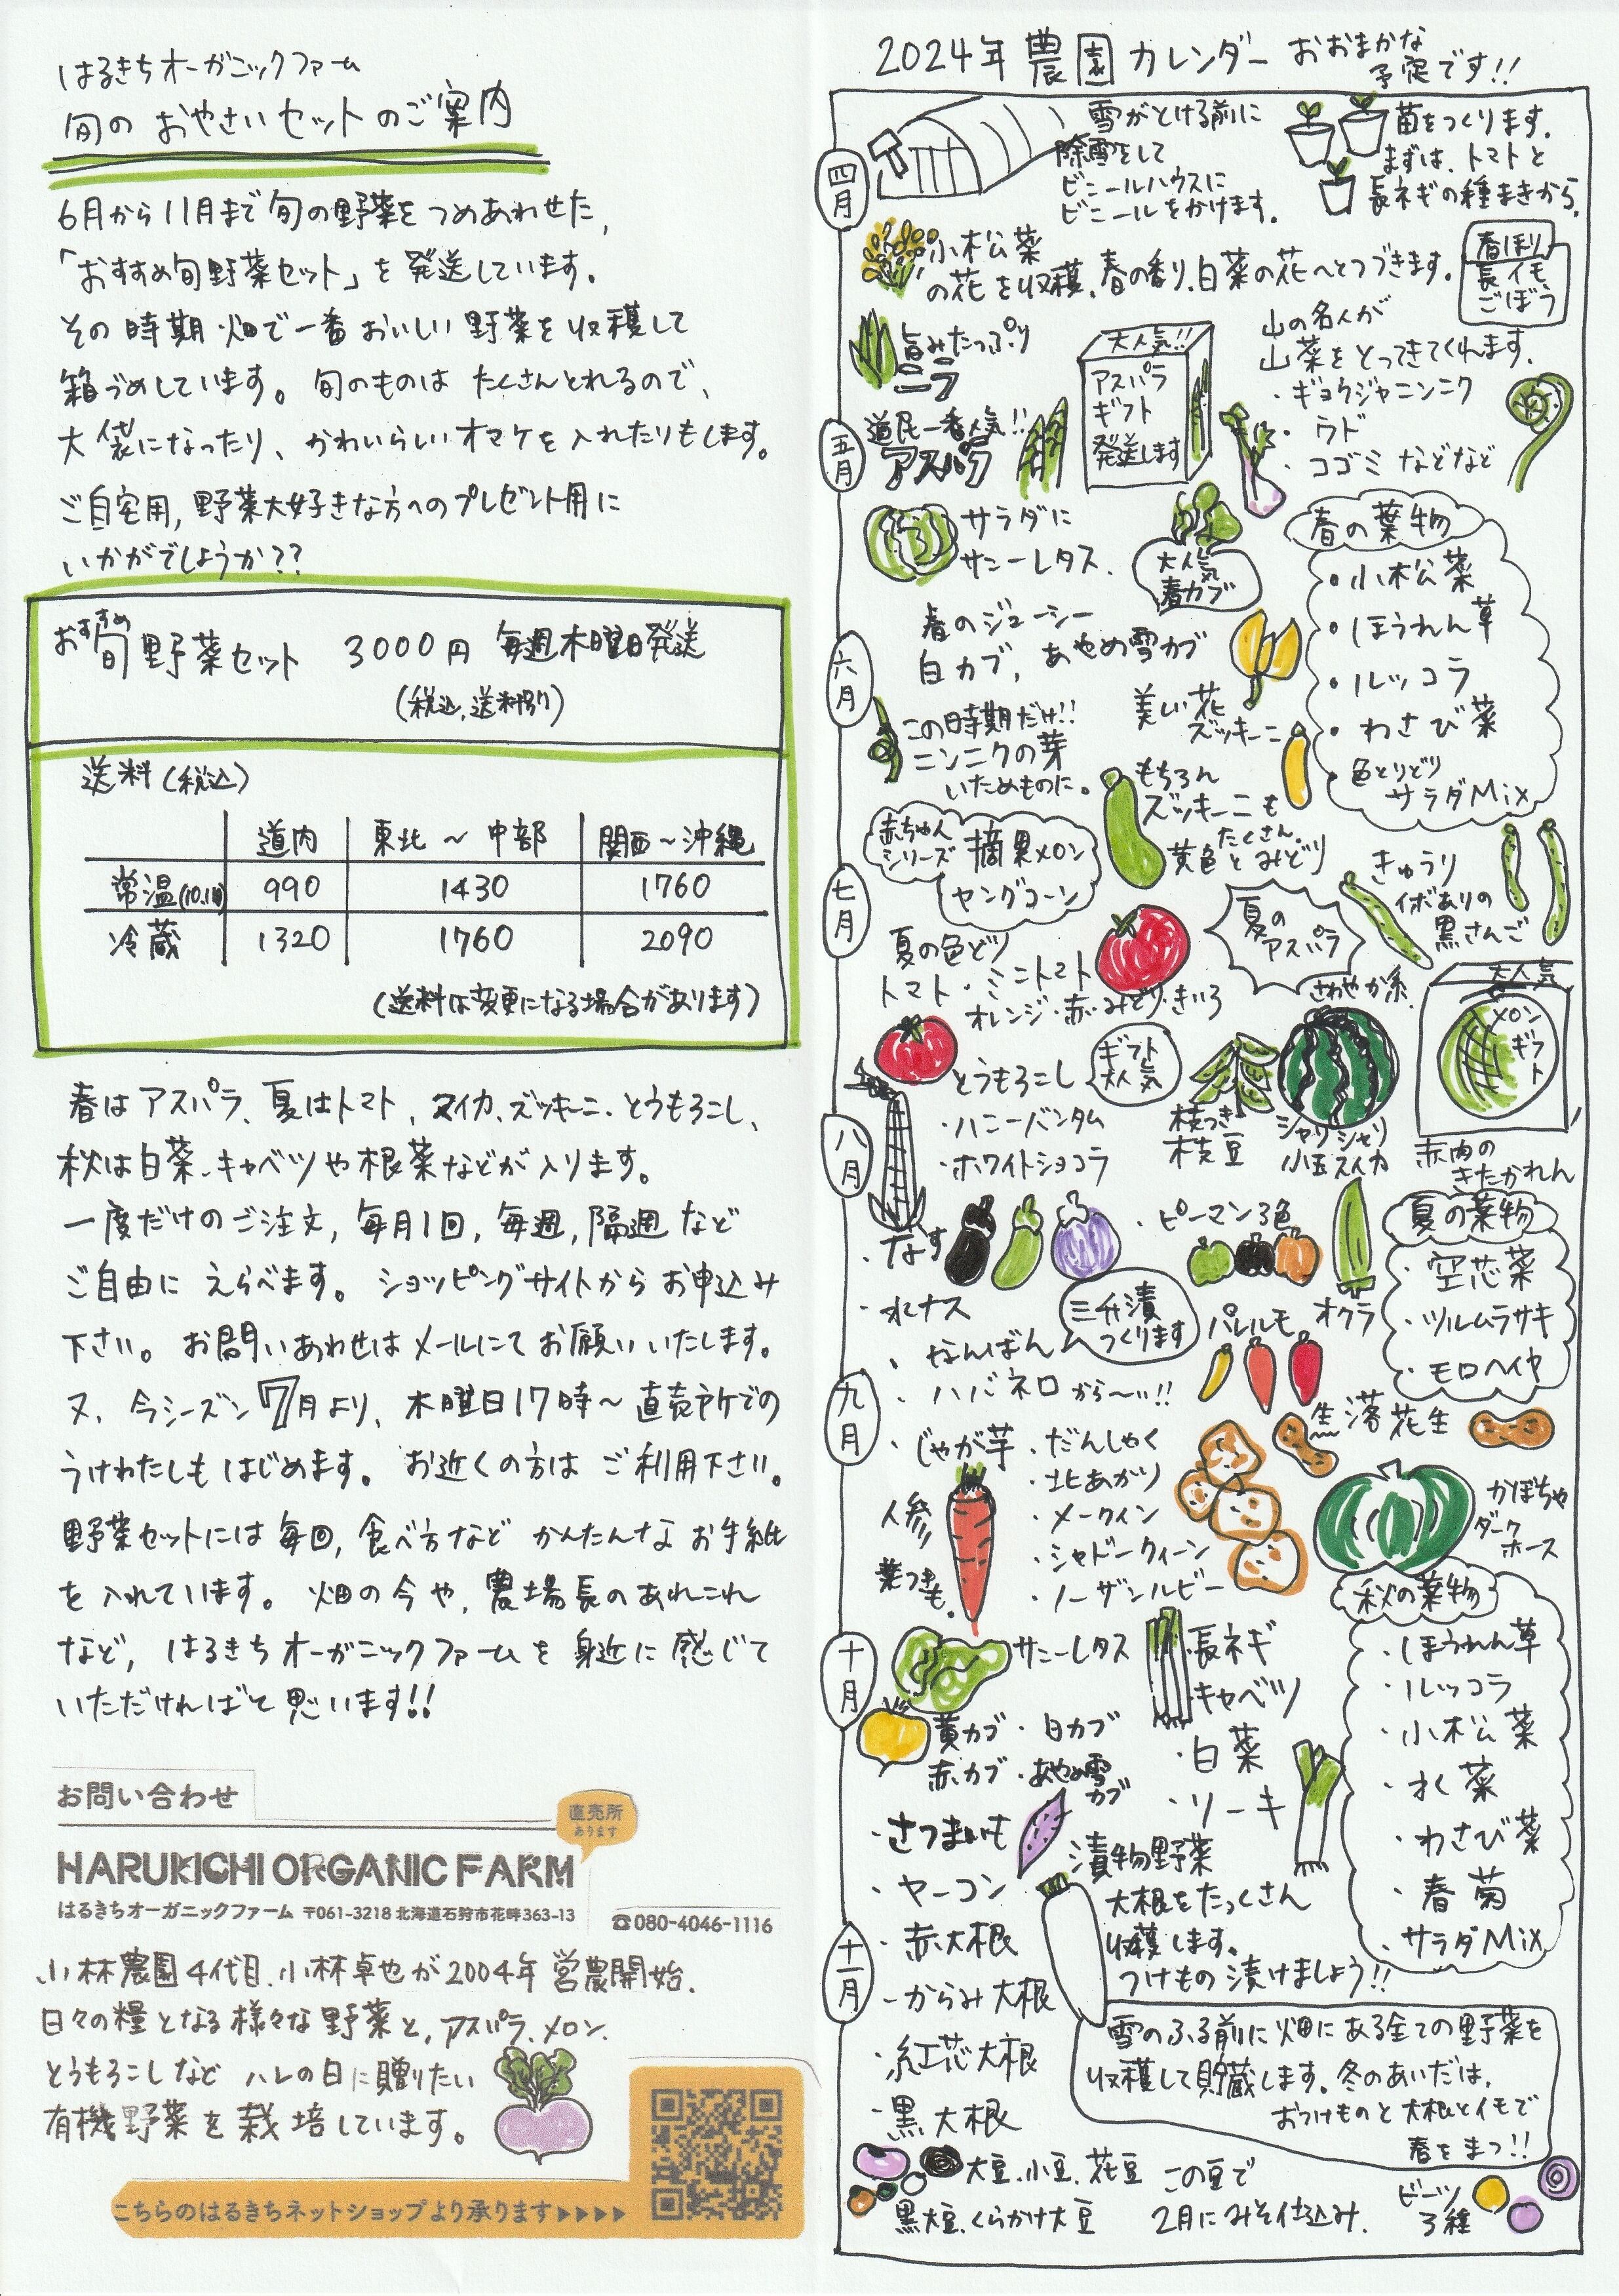 はるきちオーガニックファーム
旬の おやさいセットのご案内
6月から11月まで旬の野菜をつめあわせた、
「おすすめ旬野菜セット」を発送しています。
その時期・畑で一番おいしい野菜を収穫して
箱づめしています。旬のものはたくさんとれるので、
大袋になったり、かわいらしいオマケを入れたりもします。
ご自宅用,野菜大好きな方へのプレゼント用に
いかがでしょうか??
おすすめ
旬野菜セット 3000円 毎週木曜日発送
(税込,送料別)
送料(税込)
道内 東北〜中部 関西〜沖縄
常温(10.11月) 990 1430 1760
冷蔵 1320 1760 2090
(送料は変更になる場合があります)
春はアスパラ、夏はトマト,スイカ、ズッキーニ、とうもろこし、
秋は白菜、キャベツや根菜などが入ります。
一度だけのご注文,毎月1回,毎週,隔週など
ご自由にえらべます。ショッピングサイトからお申込み
下さい。お問いあわせはメールにてお願いいたします。
又、今シーズン7月より、木曜日17時〜直売所での
うけわたしもはじめます。お近くの方はご利用下さい。
野菜セットには毎回,食べ方などかんたんなお手紙
を入れています。畑の今や,農場長のあれこれ
など,はるきちオーガニックファームを身近に感じて
いただければと思います!!
お問い合わせ
直売所
あります
HARUKICHI ORGANIC FARM
はるきちオーガニックファーム 〒061-3218 北海道石狩市花畔363-13
☎080-4046-1116
小林農園4代目、小林卓也が2004年営農開始.
日々の糧となる様々な野菜と,アスパラ、メロン、
とうもろこしなどハレの日に贈りたい
有機野菜を栽培しています。
こちらのはるきちネットショップより承ります▶▶▶▶
2024年 農園カレンダー おおまかな
予定です!!
四月
雪がとける前に
除雪をして
ビニールハウスに
ビニールをかけます.
苗をつくります.
まずは、トマトと
長ネギの種まきから.
小松菜
の花を収穫.春の香り.白菜の花へとつづきます.
春ほり
長イモ
ごぼう
旨みたっぷり
ニラ
大人気!!
アスパラ
ギフト
発送します
山の名人が
山菜をとってきてくれます.
・ギョウジャニンニク
・ウド
・コゴミなどなど
五月
道民一番人気!!
アスパラ
サラダに
サニーレタス.
大人気
春カブ
春の葉物
・小松菜
・ほうれん草
・ルッコラ
・わさび菜
・色とりどり
サラダMix
六月
春のジューシー
白カブ,あやめ雪カブ
この時期だけ!!
ニンニクの芽
いためものに。
美しい花
ズッキーニ
もちろん
ズッキーニも
たくさん。
黄色とみどり
赤ちゃん
シリーズ
摘果メロン
ヤングコーン
七月
夏の
アスパラ
きゅうり
イボありの
黒さんご
さわやか系.
夏の色どり
トマト・ミニトマト
オレンジ・赤・みどり・きいろ
大人気
メロン
ギフト
赤肉の
きたかれん
とうもろこし
ギフト
大人気
・ハニーバンタム
・ホワイトショコラ
枝つき
枝豆
シャリシャリ
小玉スイカ
八月
・なす
・水ナス
・ピーマン3色
オクラ
夏の葉物
・空芯菜
・ツルムラサキ
・モロヘイヤ
三升漬
つくります
・なんばん
・ハバネロから〜!!
パレルモ
九月
・じゃが芋
・だんしゃく
・北あかり
・メークイン
・シャドークイーン
・ノーザンルビー
生落花生
人参
葉つきも.
かぼちゃ
ダーク
ホース
十月
サニーレタス
長ネギ
キャベツ
・白菜
・リーキ
黄カブ・白カブ
赤カブ・あやめ雪
カブ
秋の葉物
・ほうれん草
・ルッコラ
・小松菜
・水菜
・わさび菜
・春菊
・サラダMix
・さつまいも
・ヤーコン
・赤大根
・からみ大根
・紅芯大根
・黒大根
漬物野菜
大根をたっくさん
収穫します。
つけもの漬けましょう!!
十一月
雪のふる前に畑にある全ての野菜を
収穫して貯蔵します。冬のあいだは、
おつけものと大根とイモで
春をまつ!!
大豆.小豆.花豆
黒大豆.くらかけ大豆
この豆で
2月にみそ仕込み.
ビーツ
3種